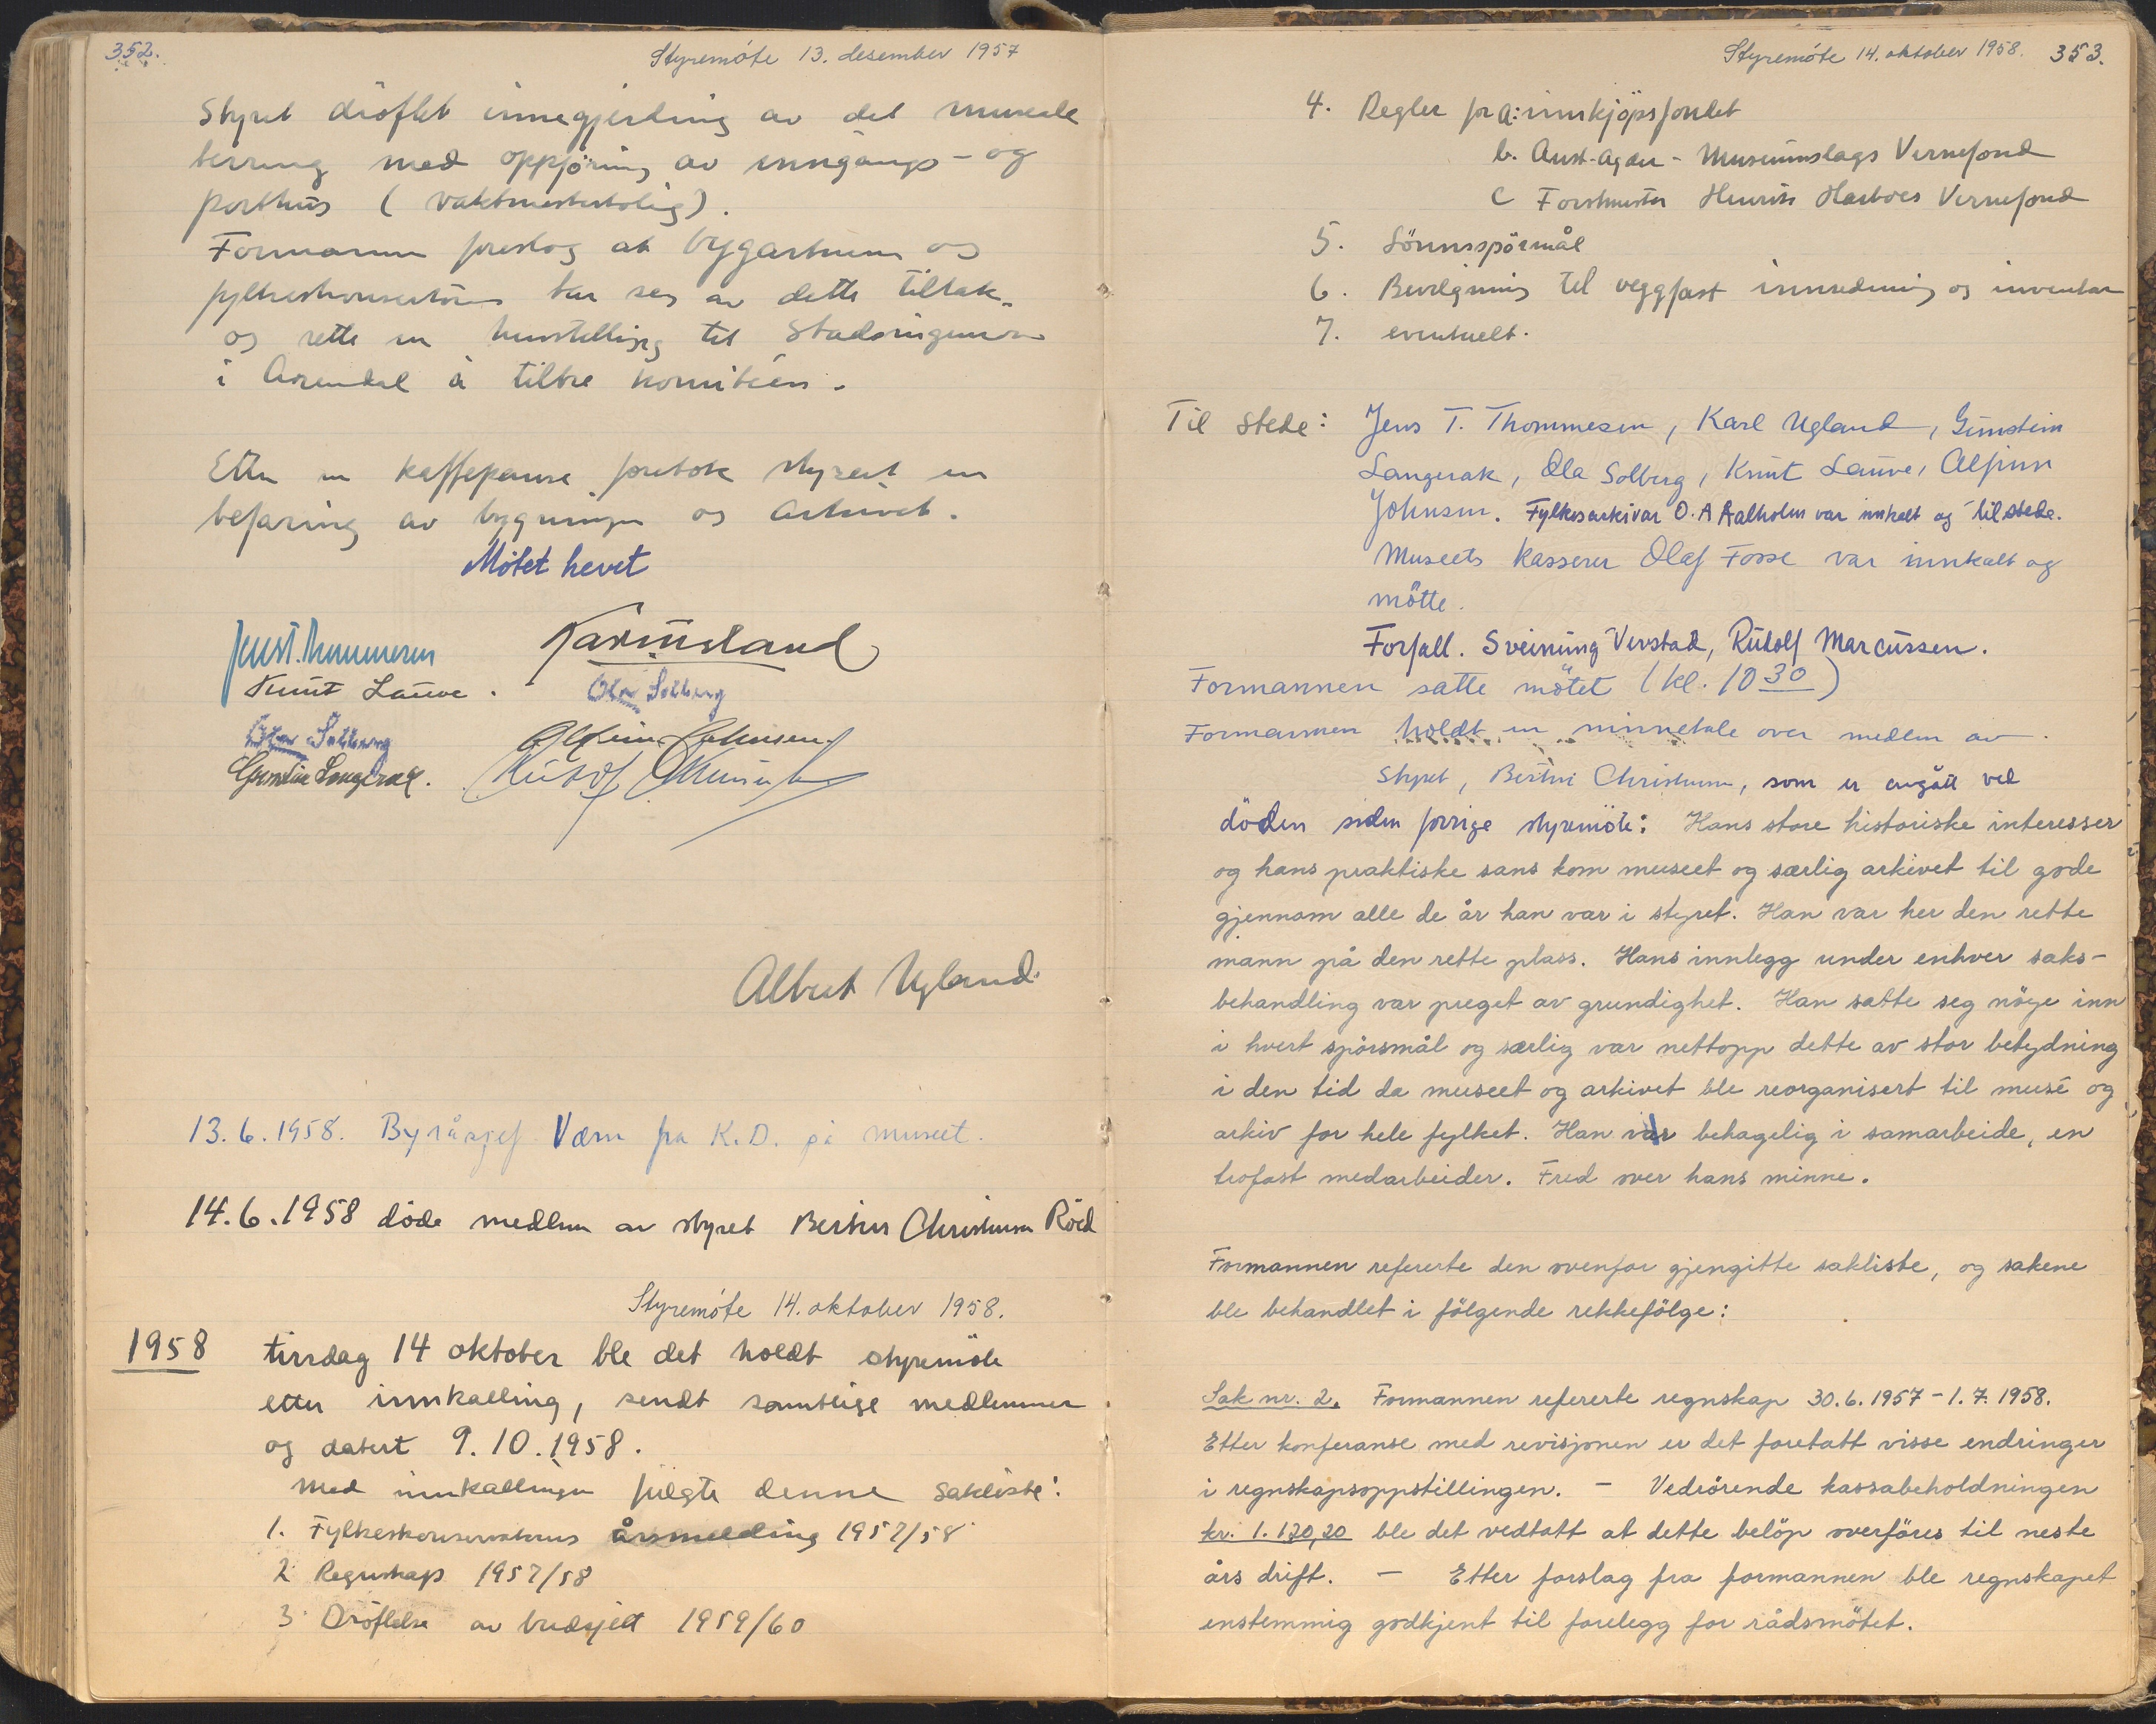 352.
Styremöte 13. desember 1957
Styret drøftet innegjerding av det museale
terreng med oppføring av inngangs- og
porthus (vaktmesterbolig).
Formannen foreslog at bygartneren og
fylkeskonservatoren tar seg av dette tiltak
og rette en henstilling til Stadsingeniøren
i Arendal å tiltre komitéen.
Etter en kaffepause foretok styret en
befaring av bygningen og arkivet.
Møtet hevet
Jens T. Thommesen Karl Ugland
Knut Lauve. Ola Solberg
Ola Solberg Alfinn Johnsen.
Gunstein Langerak.
Albert Ugland.
13.6.1958. Byråsjef Værn fra K.D. på museet.
14.6.1958 døde medlem av styret Bertius Christensen Röed
Styremöte 14. oktober 1958.
1958 tirsdag 14 oktober ble det holdt styremöte
etter innkalling, sendt samtlige medlemmer
og datert 9.10.1958.
Med innkallingen fulgte denne sakliste:
1. Fylkeskonservatorens årsmelding 1957/58
2. Regnskap 1957/58
3. Drøftelse av budsjett 1959/60
Styremöte 14. oktober 1958. 353.
4. Regler for a: innkjöpsfondet
b. Aust-Agder-Museumslags Vernefond
c Forstmester Henrik Harboes Vernefond
5. Lönnsspörmål
6. Bevilgning til veggfast innredning og inventar
7. eventuelt.
Til stede: Jens T. Thommesen, Karl Ugland, Gunstein
Langerak, Ola Solberg, Knut Lauve, Alfinn
Johnsen. Fylkesarkivar O. A Aalholm var innkalt og tilstede.
Museets kasserer Olaf Fosse var innkalt og
mötte.
Forfall. Sveinung Verstad, Rudolf Marcussen.
Formannen satte mötet (kl. 10 30)
Formannen holdt en minnetale over medlem av
Styret, Bertius Christensen, som er avgått ved
döden siden forrige styremöte: Hans store historiske interesser
og hans praktiske sans kom museet og særlig arkivet til gode
gjennom alle de år han var i styret. Han var her den rette
mann på den rette plass. Hans innlegg under enhver saks-
behandling var preget av grundighet. Han satte seg nöye inn
i hvert spörsmål og særlig var nettopp dette av stor betydning
i den tid da museet og arkivet ble reorganisert til musé og
arkiv for hele fylket. Han var behagelig i samarbeide, en
trofast medarbeider. Fred over hans minne.
Formannen refererte den ovenfor gjengitte sakliste, og sakene
ble behandlet i fölgende rekkefölge:
Sak nr. 2. Formannen refererte regnskap 30.6.1957-1.7.1958.
Etter konferanse med revisjonen er det foretatt visse endringer
i regnskapsoppstillingen. - Vedrörende kassabeholdningen
kr. 1.120,20 ble det vedtatt at dette belöp overföres til neste
års drift. - Etter forslag fra formannen ble regnskapet
enstemmig godkjent til forelegg for rådsmötet.